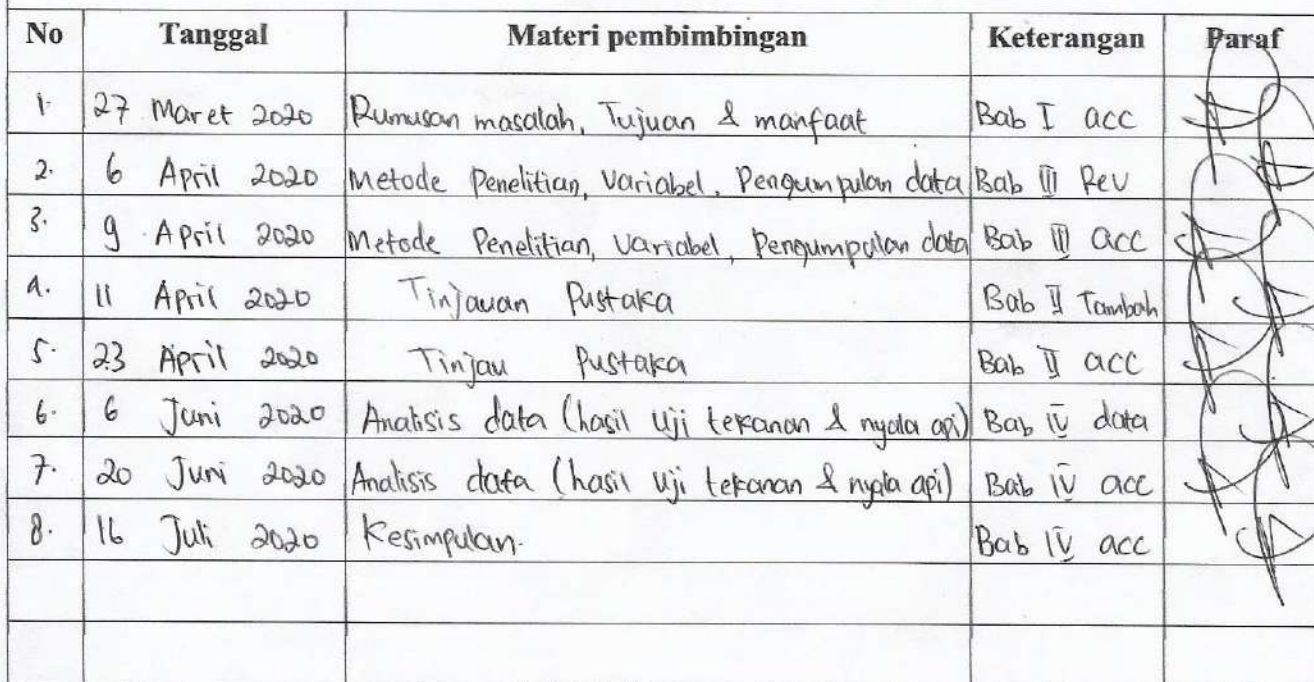 No Tanggal Materi pembimbingan Keterangan Paraf
1. 27 Maret 2020 Rumusan masalah, Tujuan & manfaat Bab I acc
2. 6 April 2020 Metode Penelitian, Variabel, Pengumpulan data Bab III Rev
3. 9 April 2020 Metode Penelitian, Variabel, Pengumpulan data Bab III acc
4. 11 April 2020 Tinjauan Pustaka Bab II Tambah
5. 23 April 2020 Tinjau Pustaka Bab II acc
6. 6 Juni 2020 Analisis data (hasil Uji tekanan & nyala api) Bab IV data
7. 20 Juni 2020 Analisis data (hasil Uji tekanan & nyala api) Bab IV acc
8. 16 Juli 2020 Kesimpulan. Bab IV acc